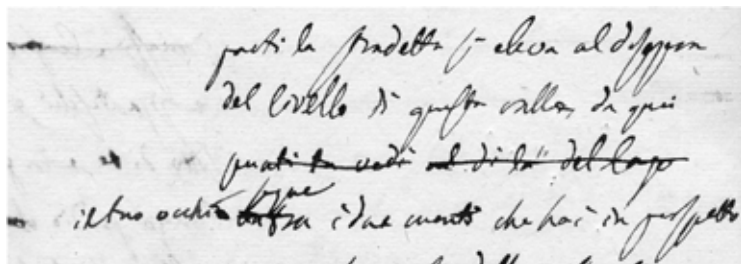 parti la stradetta si eleva al disopra
del livello di questa valle, da quei
punti tu vedi al di là del lago
il tuo occhio segue i due monti che hai in prospetto